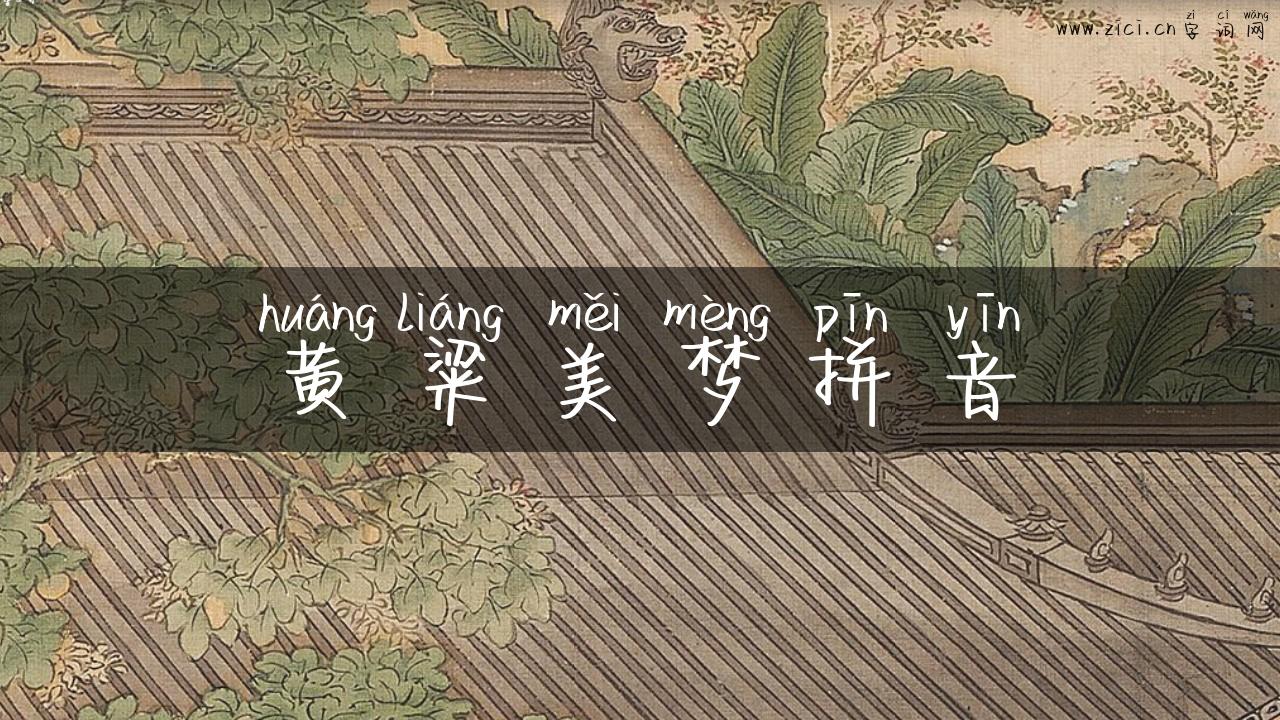 zì cí wǎng
www.zici.cn 字词网
huáng liáng měi mèng pīn yīn
黄粱美梦拼音